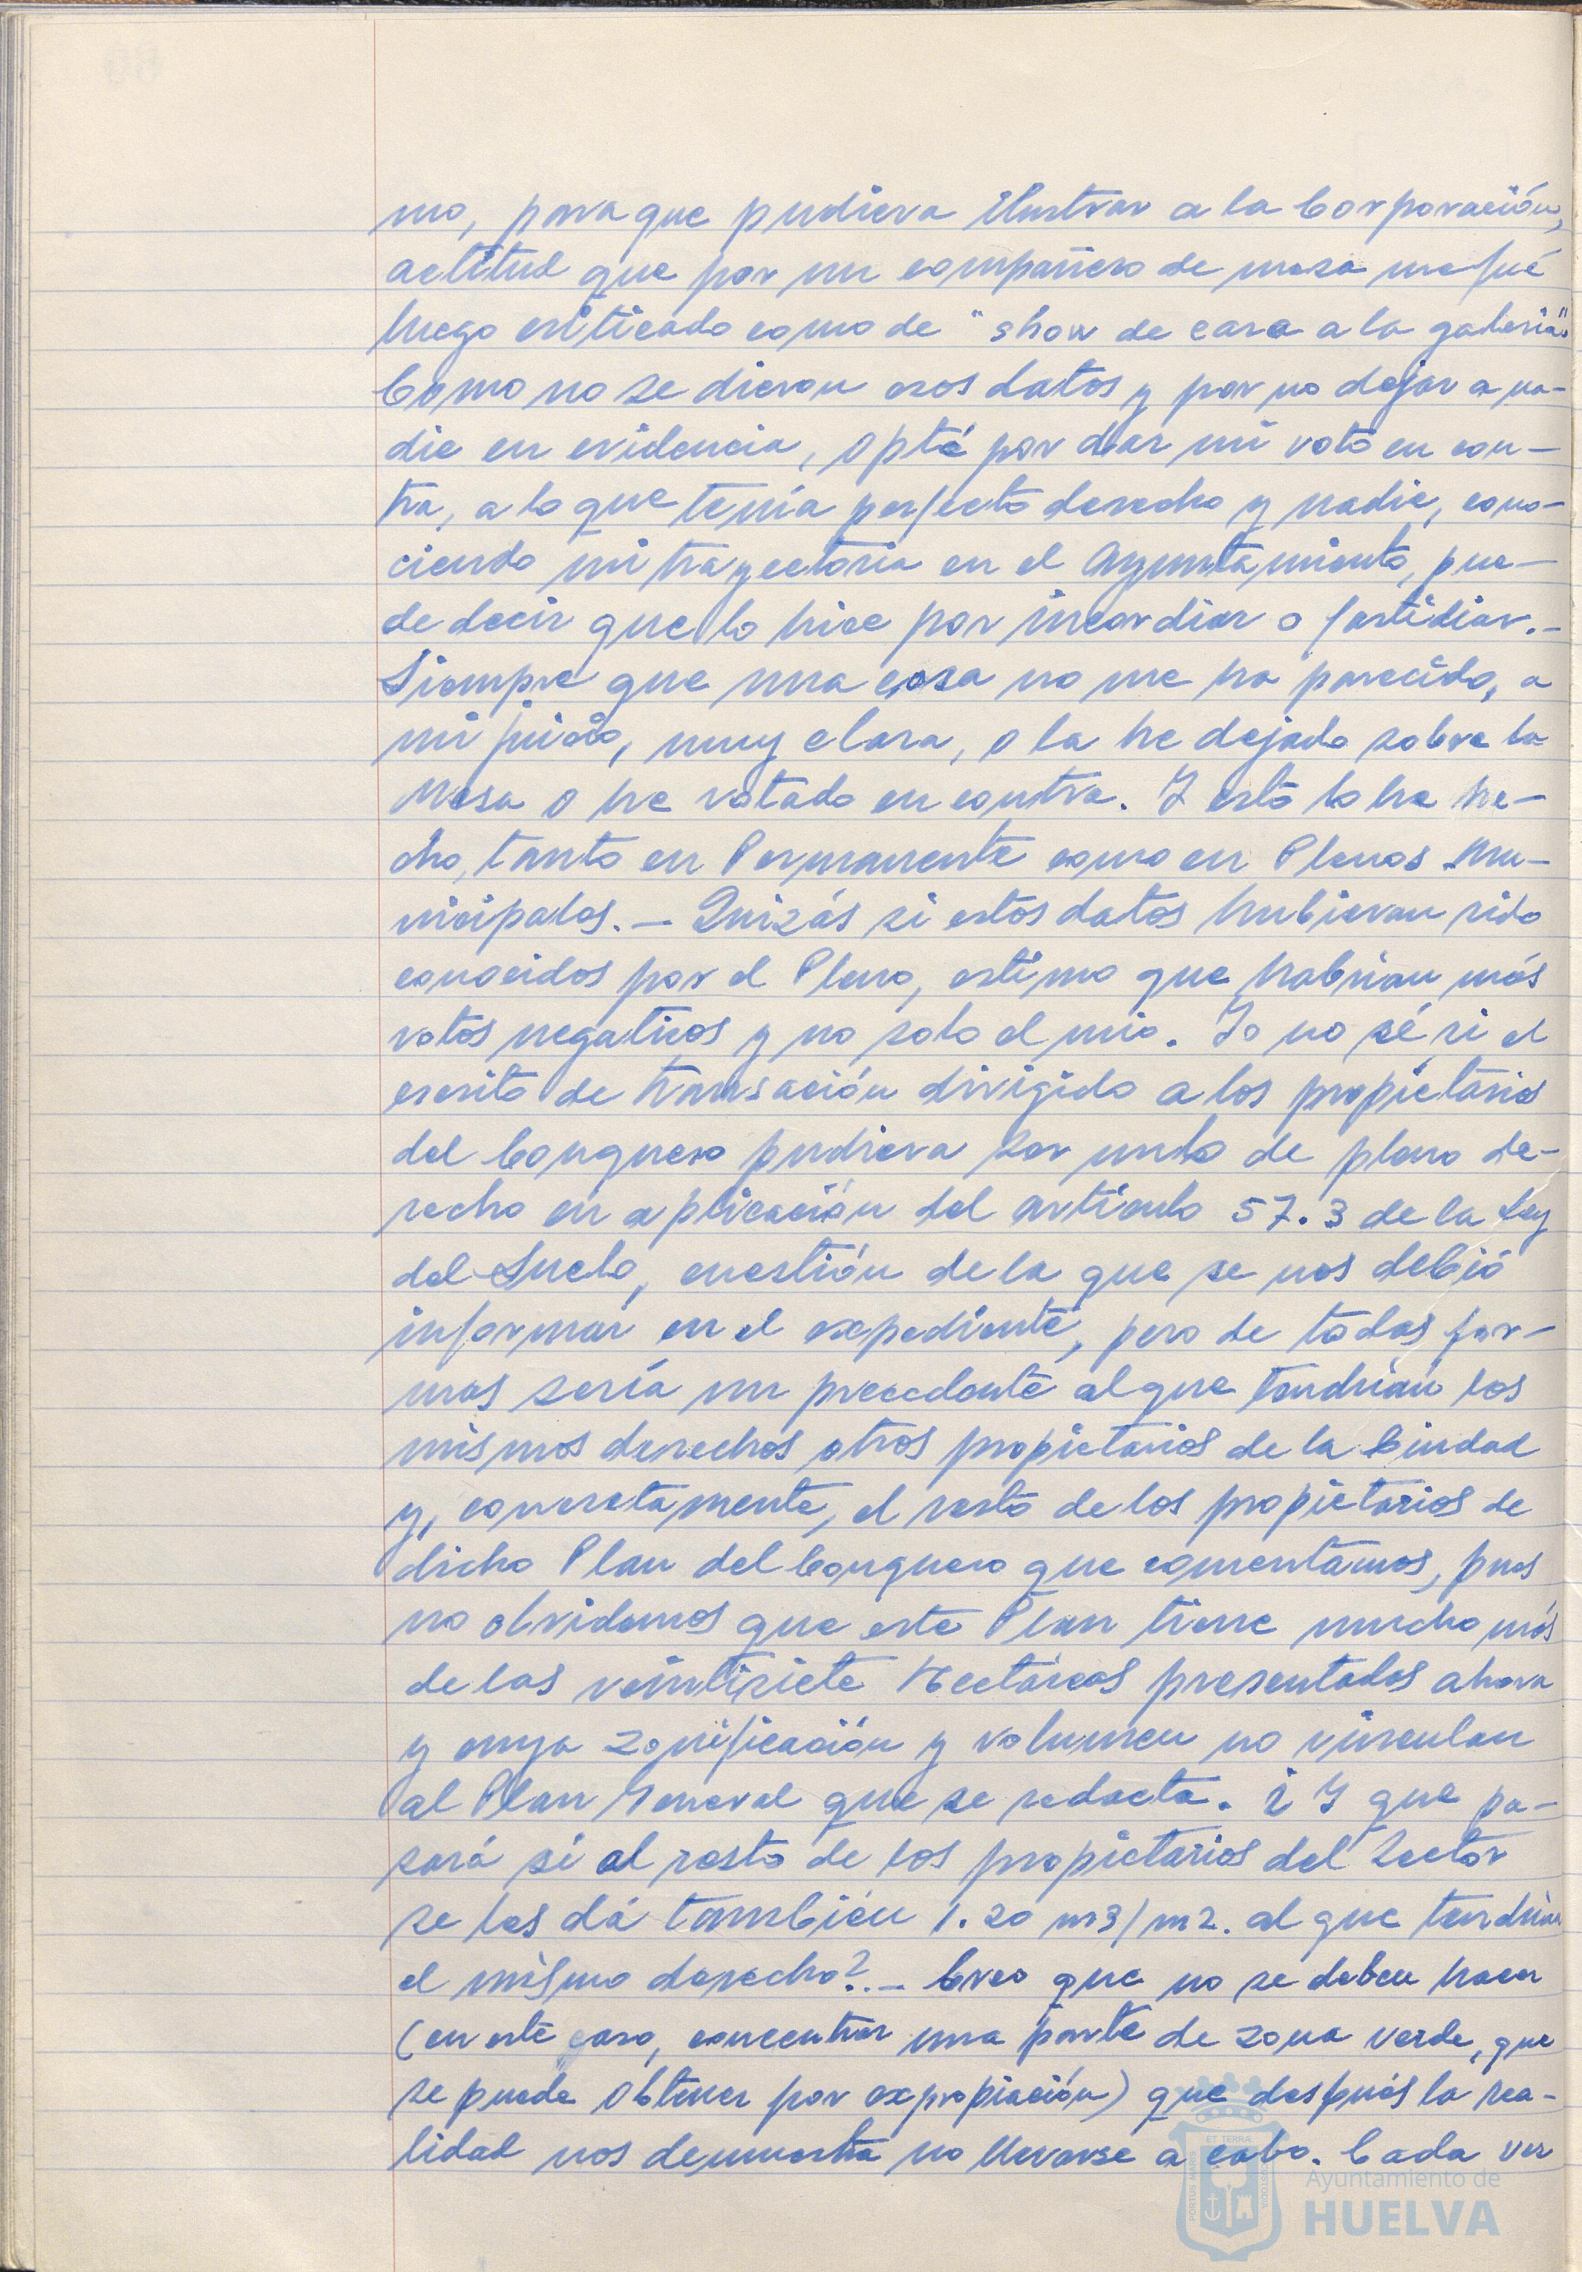 mo, para que pudiera ilustrar a la Corporación,
actitud que por un compañero de mesa me fué
luego criticado como de "show de cara a la galeria".
Como no se dieron esos datos y por no dejar a na-
die en evidencia, opté por dar mi voto en con-
tra, a lo que tenía perfecto derecho y nadie, cono-
ciendo mi trayectoria en el Ayuntamiento, pue-
de decir que lo hice por incordiar o fastidiar.-
Siempre que una cosa no me ha parecido, a
mi juicio, muy clara, o la he dejado sobre la
Mesa o he votado en contra. Y esto lo he he-
cho, tanto en Permanente como en Plenos Mu-
nicipales.- Quizás si estos datos hubieran sido
conocidos por el Pleno, estimo que habrian más
votos negativos y no solo el mio. Yo no sé si el
escrito de transación dirigido a los propietarios
del Conquero pudiera ser nulo de pleno de-
recho en aplicación del artículo 57.3 de la Ley
del Suelo, cuestión de la que se nos debió
informar en el expediente, pero de todas for-
mas sería un precedente al que tendrían los
mismos derechos otros propietarios de la Ciudad
y, concretamente, el resto de los propietarios de
dicho Plan del Conquero que comentamos, pues
no olvidemos que este Plan tiene mucho más
de las veintisiete Hectáreas presentadas ahora
y cuya zonificación y volumen no vinculan
al Plan General que se redacta. ¿Y que pa-
sará si al resto de los propietarios del Sector
se les dá también 1.20 m3/m2. al que tendrían
el mismo derecho?.- Creo que no se deben hacer
(en este caso, concentrar una parte de zona verde, que
se puede obtener por expropiación) que después la rea-
lidad nos demuestra no llevarse a cabo. Cada vez
ET TERRÆ
PORTUS MARIS
CUSTODIA
Ayuntamiento de
HUELVA